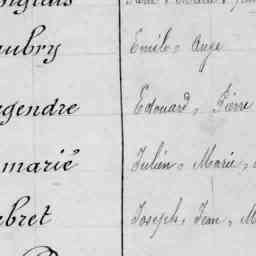 aubry Emile, Ange
egendre Edouard, Pierre
marié Julien, Marie,
ebret Joseph, Jean, M